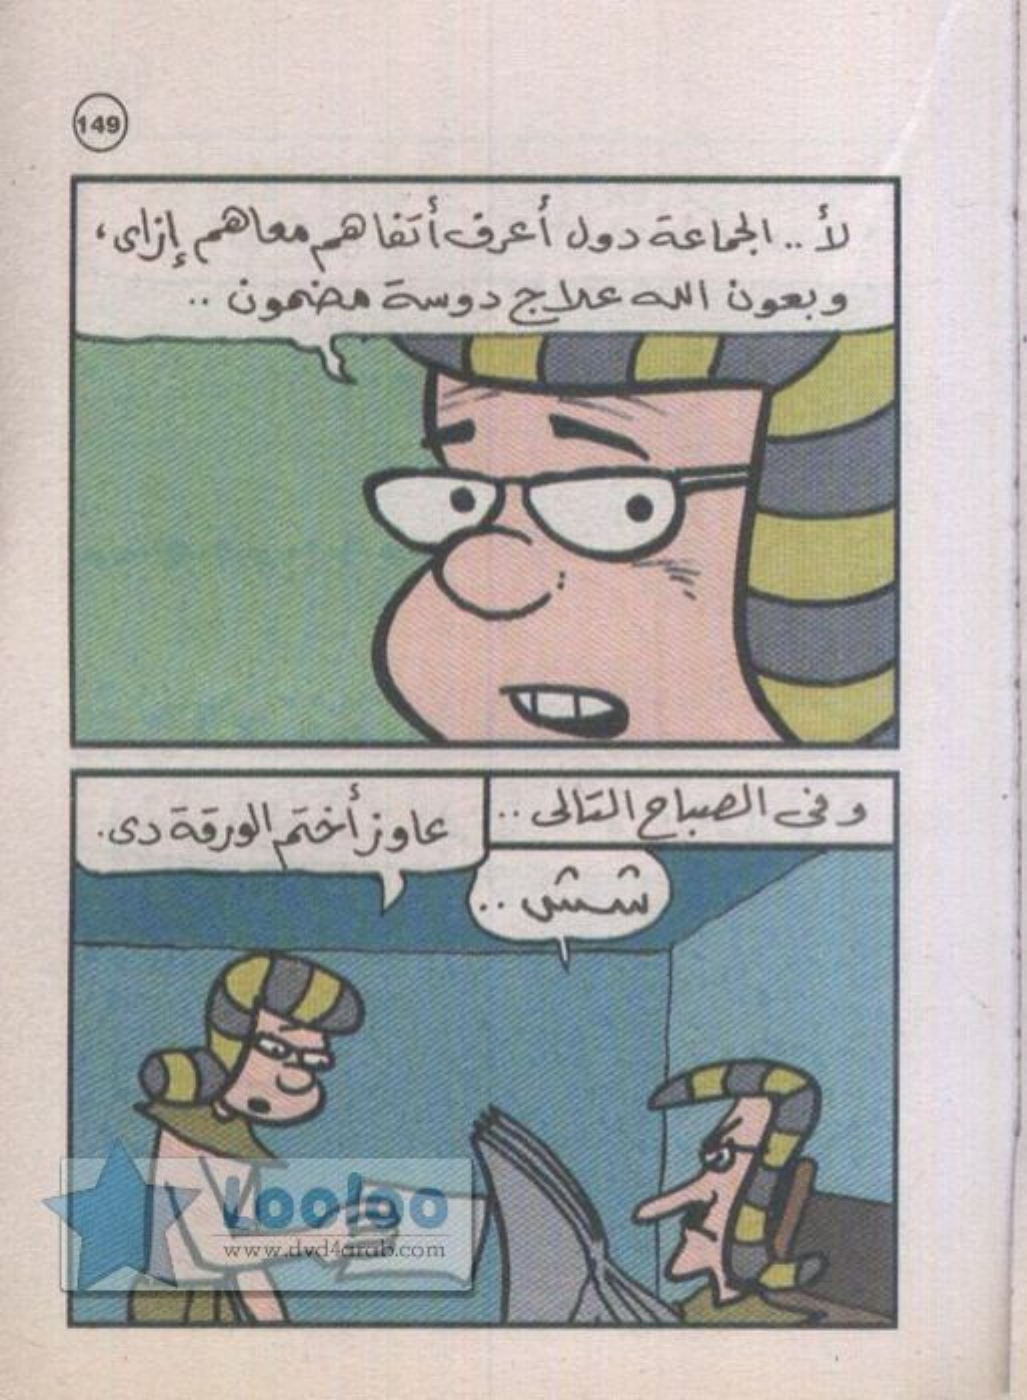 149
لأ .. الجماعة دول أعرف أتفاهم معاهم إزاى،
وبعون الله علاج دوسة مضمون ..
وفى الصباح التالى ..
عاوز أختم الورقة دى.
شششش ..
Looloo
www.dvd4arab.com